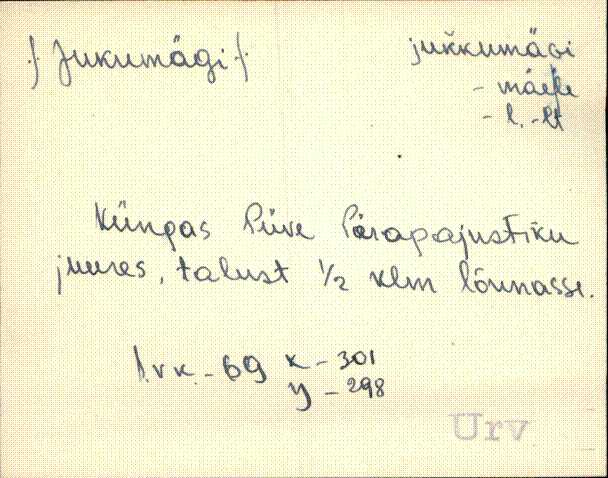 ⁒ Jukumägi ⁒ juk̆kumäǵi
- mäele
- l. -lt
Küngas Püve Pärapajustiku
juures, talust 1/2 klm lõunasse.
Ark. - 69 x - 301
y - 298
Urv